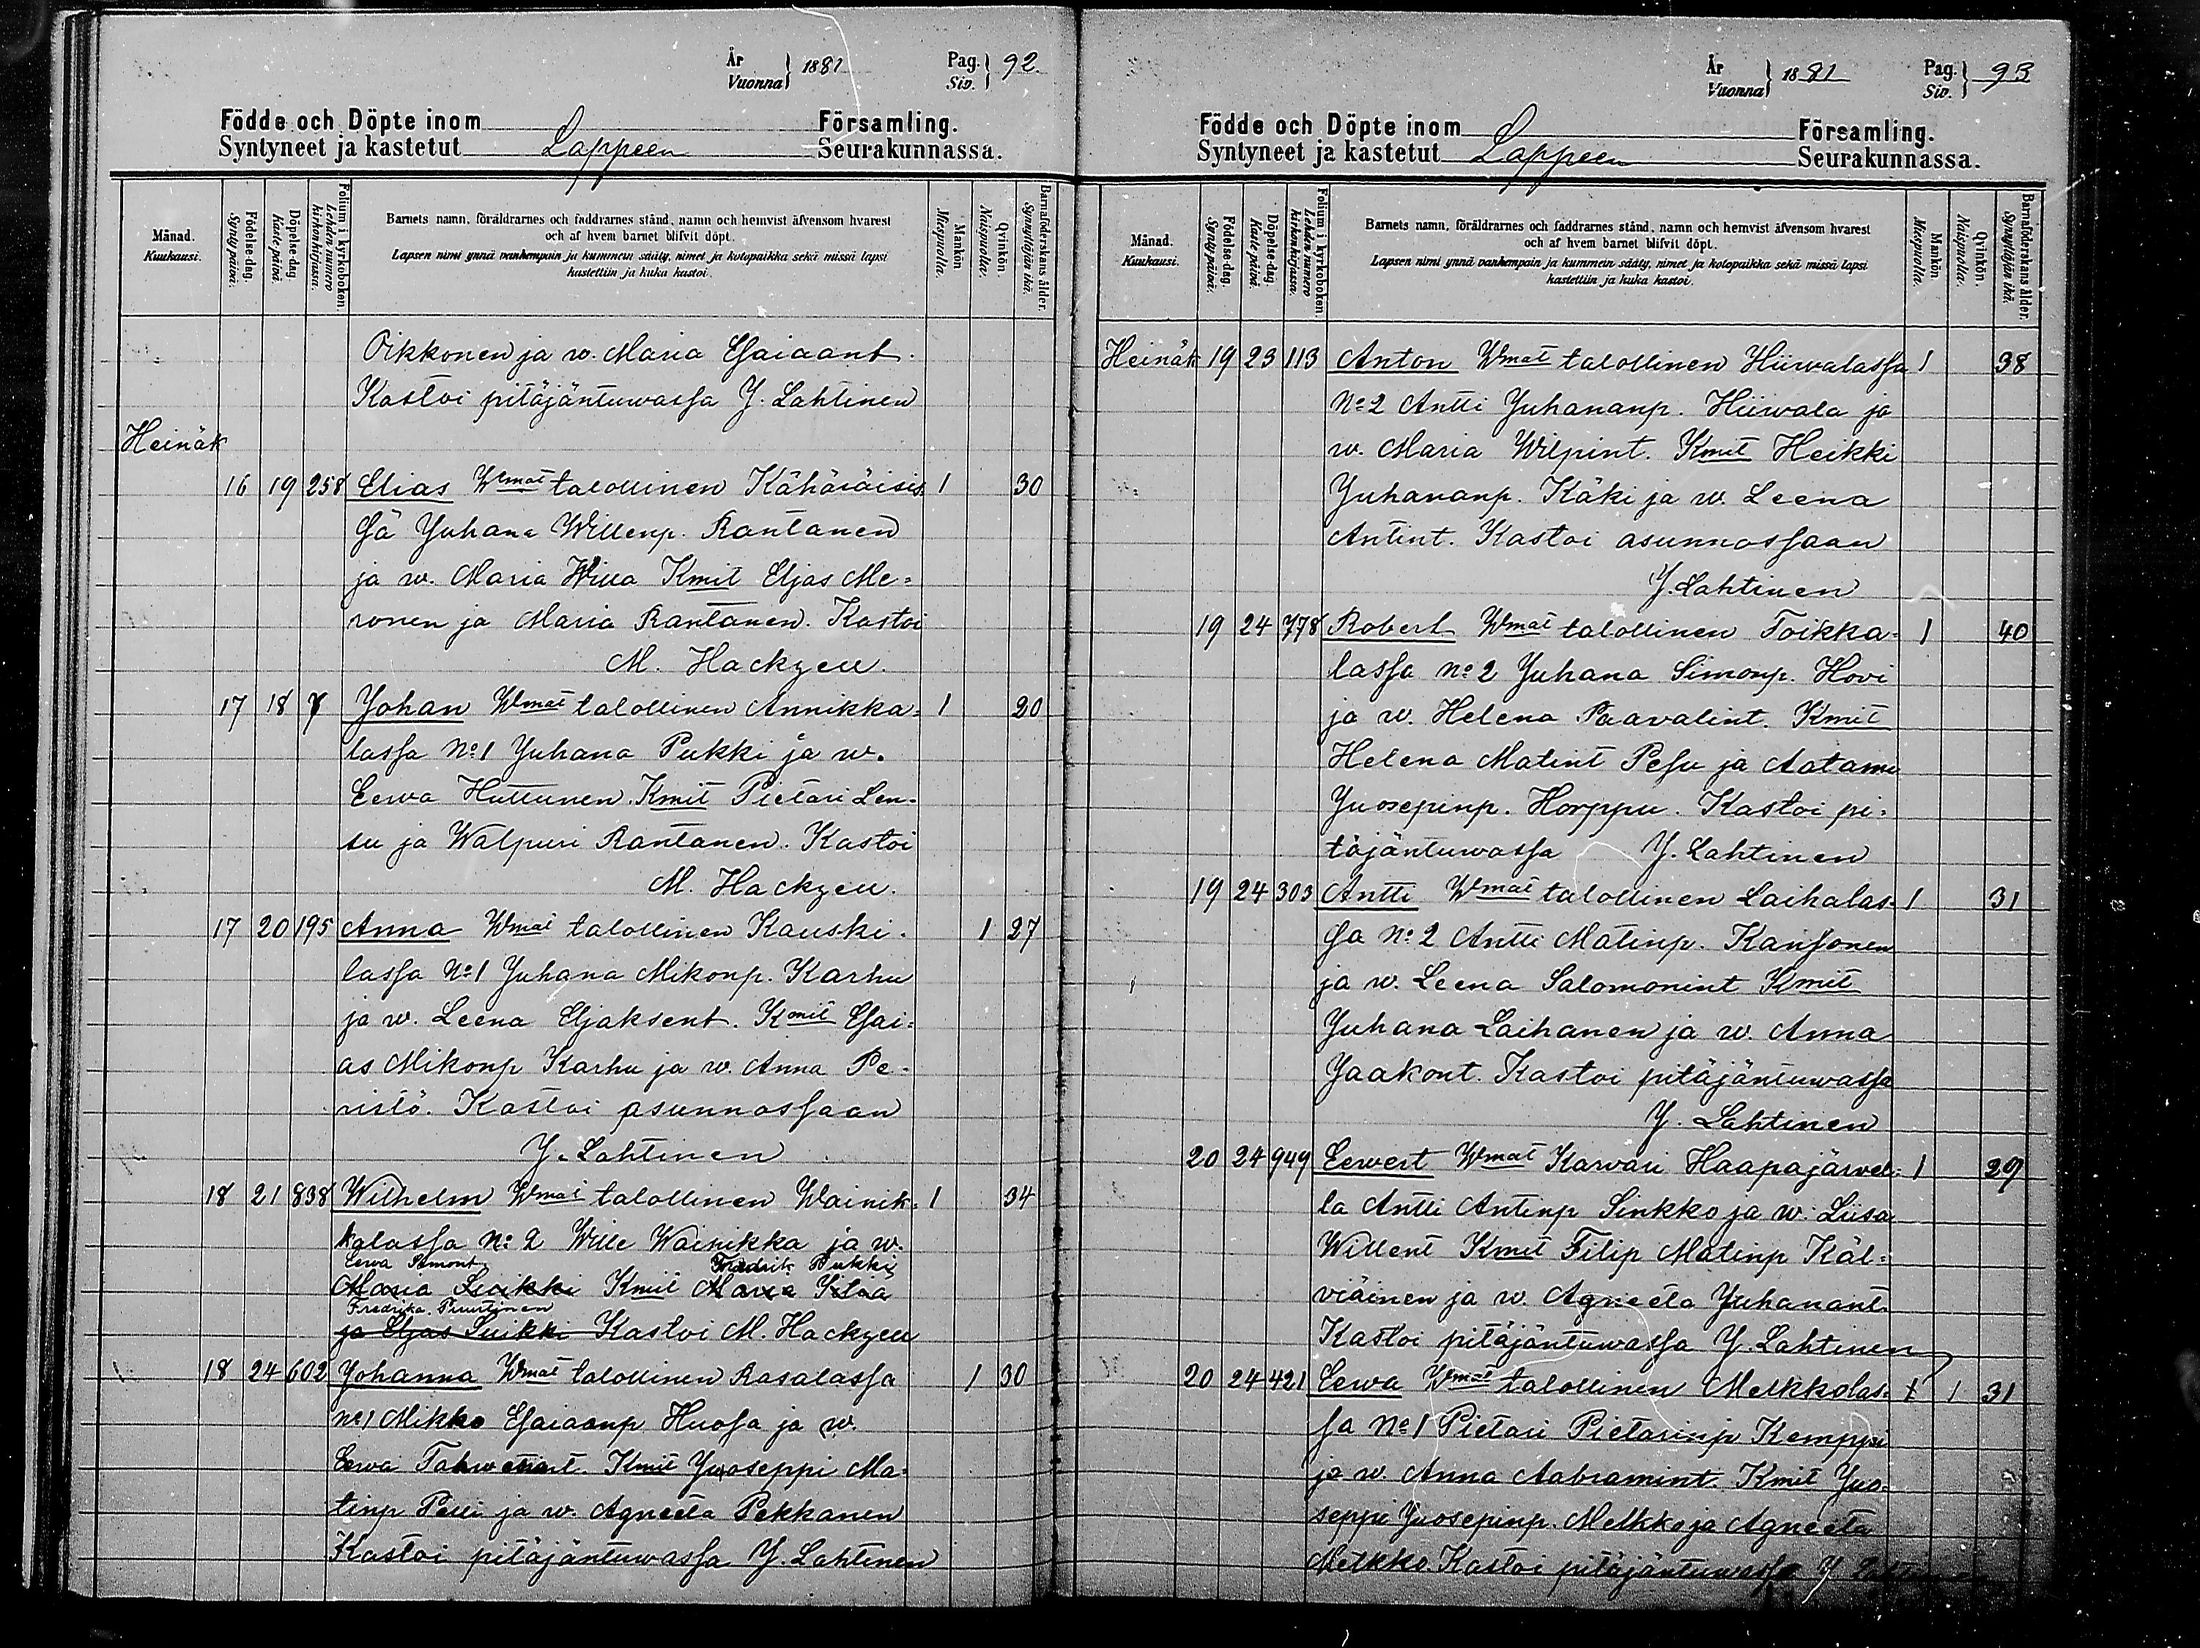 År
Vuonna } 1881
Pag.
Siv. } 92.
Födde och Döpte inom Församling.
Syntyneet ja kastetut Lappeen Seurakunnassa.
Månad.
Kuukausi.
Födelse-dag.
Synty päivä.
Döpelse-dag.
Kaste päivä.
Folium i kyrkoboken.
Lehden numero kirkonkirjassa.
Barnets namn, föräldrarnes och faddrarnes stånd, namn och hemvist äfvensom hvarest
och af hvem barnet blifvit döpt.
Lapsen nimi ynnä vanhempain ja kummein sääty, nimet ja kotopaikka sekä missä lapsi
kastettiin ja kuka kastoi.
Mankön
Miespuolta.
Qvinkön
Naispuolta.
Barnaföderskans ålder.
Synnyttäjän ikä.
Oikkonen ja w. Maria Esaiaant.
Kastoi pitäjäntuwassa J. Lahtinen
Heinäk
16 19 258 Elias Wmat talollinen Kähäräisis 1 30
sä Juhana Willenp. Rantanen
ja w. Maria Willa Kmit Eljas Me=
ronen ja Maria Rantanen. Kastoi
M. Hackzell.
17 18 7 Johan Wmat talollinen Annikka= 1 20
lassa No 1 Juhana Pukki ja w.
Eewa Huttunen. Kmit Pietari Len-
tu ja Walpuri Rantanen. Kastoi
M. Hackzell.
17 20 195 Anna Wmat talollinen Kauski- 1 27
lassa No 1 Juhana Mikonp. Karhu
ja w. Leena Eljaksent. Kmit Esai=
as Mikonp Karhu ja w. Anna Pe-
ristö. Kastoi asunnossaan
J. Lahtinen
18 21 838 Wilhelm Wmat talollinen Wainik= 1 34
kalassa No 2 Wille Wainikka ja w.
Eewa Simont. Fredrik Pukki
Maria Suikki Kmit Maria Yilaa
Fredrika Piiurtinen
ja Eljas Suikki Kastoi M. Hackzell
18 24 602 Johanna Wmat talollinen Rasalassa 1 30
No 1 Mikko Esaiaanp Huosa ja w.
Eewa Tahwanant. Kmit Juoseppi Ma-
tinp Pelli ja w. Agneeta Pekkanen
Kastoi pitäjäntuwassa J. Lahtinen
År
Vuonna } 1881
Pag.
Siv. } 93
Födde och Döpte inom Församling.
Syntyneet ja kastetut Lappeen Seurakunnassa.
Månad.
Kuukausi.
Födelse-dag.
Synty päivä.
Döpelse-dag.
Kaste päivä.
Folium i kyrkoboken.
Lehden numero kirkonkirjassa.
Barnets namn, föräldrarnes och faddrarnes stånd, namn och hemvist äfvensom hvarest
och af hvem barnet blifvit döpt.
Lapsen nimi ynnä vanhempain ja kummein sääty, nimet ja kotopaikka sekä missä lapsi
kastettiin ja kuka kastoi.
Mankön
Miespuolta.
Qvinkön.
Naispuolta.
Barnaföderskans ålder.
Synnyttäjän ikä.
Heinäk 19 23 113 Anton Wmat talollinen Hiiwalassa 1 38
No 2 Antti Juhananp. Hiiwala ja
w. Maria Wilpint. Kmit Heikki
Juhananp. Käki ja w. Leena
Antint. Kastoi asunnossaan
J. Lahtinen
19 24 778 Robert Wmat talollinen Toikka= 1 40
lassa No 2 Juhana Simonp. Hovi
ja w. Helena Paavalint. Kmit
Helena Matint Pesu ja Aatami
Juosepinp. Horppu. Kastoi pi-
täjäntuwassa J. Lahtinen
19 24 303 Antti Wmat talollinen Laihalas- 1 31
sa No 2 Antti Matinp. Kansonen
ja w. Leena Salomonint Kmit
Juhana Laihanen ja w. Anna
Jaakont. Kastoi pitäjäntuwassa
J. Lahtinen
20 24 949 Eewert Wmat Karvari Haapajärwel- 1 29
la Antti Antinp Sinkko ja w. Liisa
Willent Kmit Filip Matinp Käl=
viäinen ja w. Agneeta Juhanant
Kastoi pitäjäntuwassa J. Lahtinen
20 24 421 Eewa Wmat talollinen Melkkolas- 1 1 31
sa No 1 Pietari Pietarinp Kemppi
ja w. Anna Aabramint. Kmit Juo-
seppi Juosepinp. Melkko ja Agneeta
Melkko. Kastoi pitäjäntuwassa J. Lahtinen